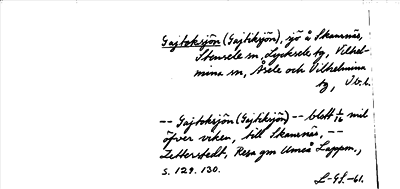 Gajtoksjön (Gajtiksjön), sjö å Skansnäs,
Stensele sn, Lycksele tg, Vilhel-
mina sn, Åsele och Vilhelmina
tg, V.b.l.
-- Gajtoksjön (Gajtiksjön) -- blott 1/16 mil
öfver viken, till Skansnäs, --
Zetterstedt, Resa gm Umeå Lappm.,
s. 129. 130.